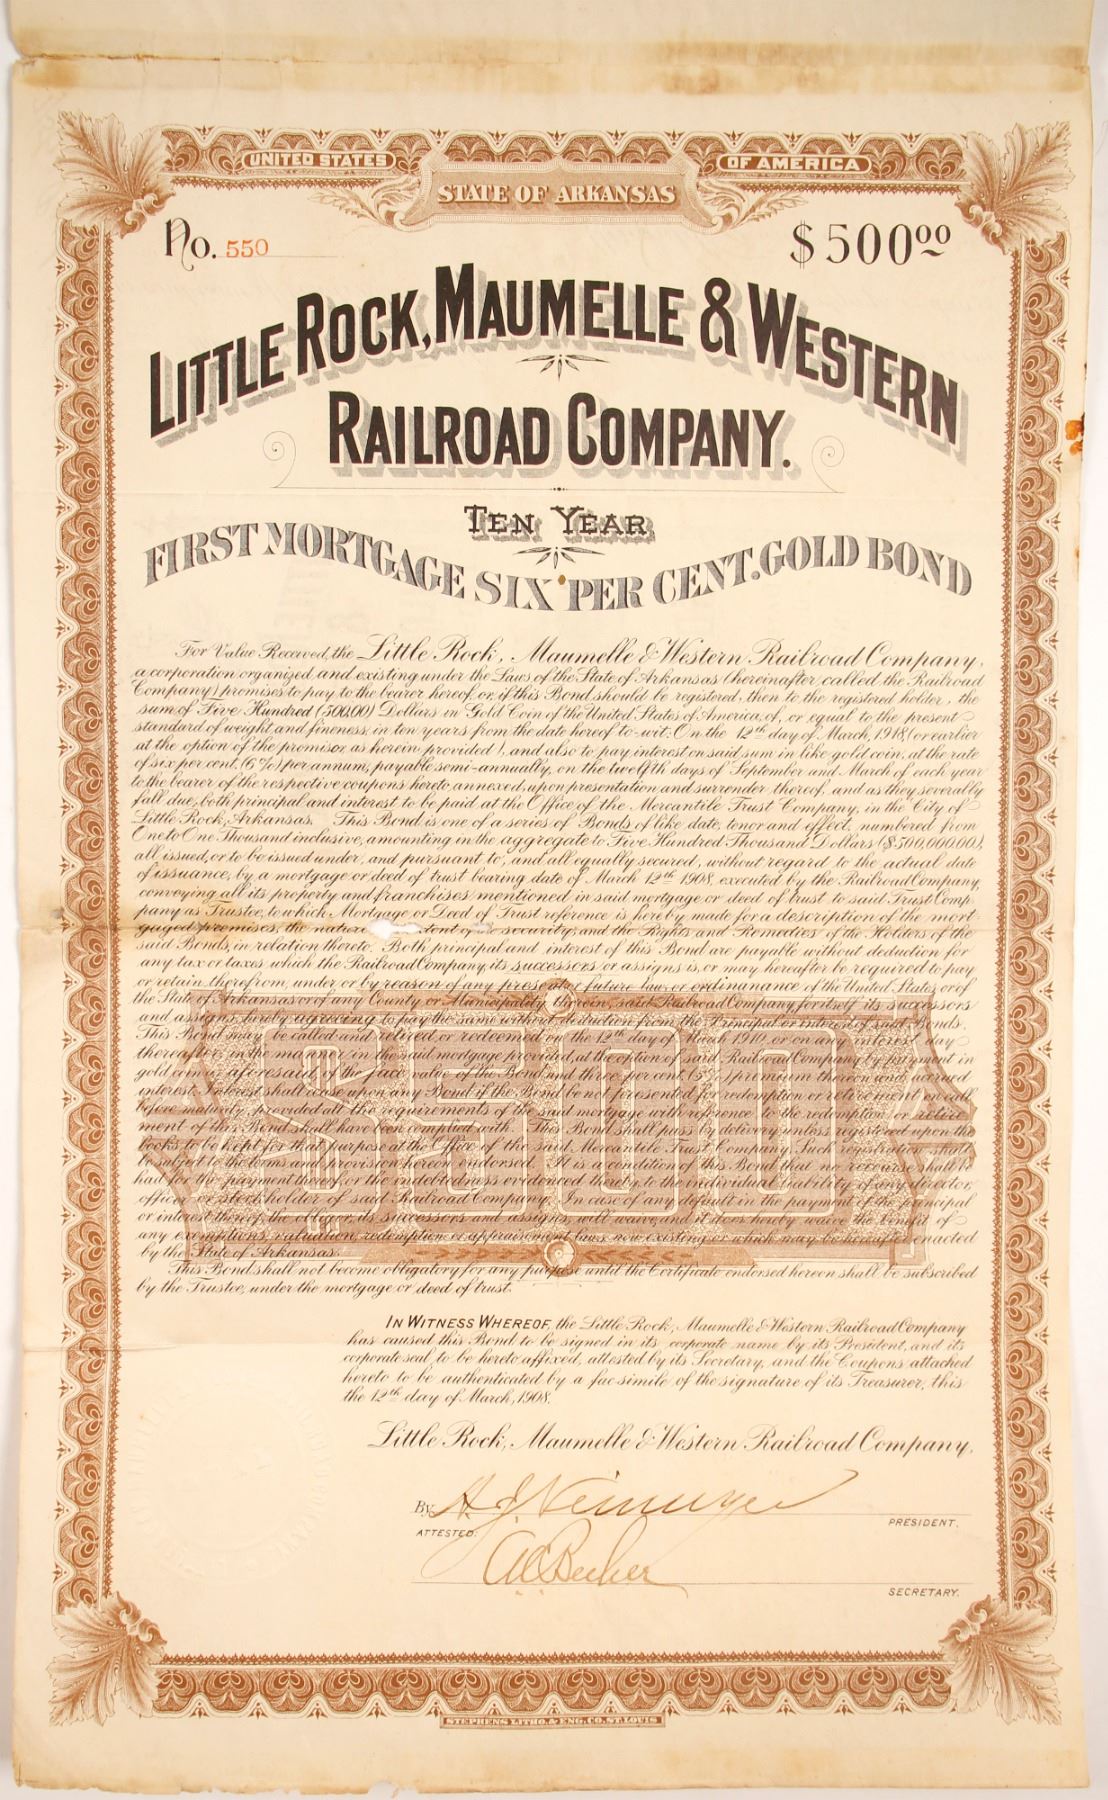 UNITED STATES
OF AMERICA
STATE OF ARKANSAS
No. 550
$500.00
LITTLE ROCK, MAUMELLE & WESTERN
RAILROAD COMPANY.
TEN YEAR
FIRST MORTGAGE SIX PER CENT. GOLD BOND
For Value Received, the Little Rock, Maumelle & Western Railroad Company,
a corporation organized and existing under the Laws of the State of Arkansas (hereinafter called the Railroad
Company) promises to pay to the bearer hereof, or, if this Bond should be registered, then to the registered holder, the
sum of Five Hundred (500.00) Dollars in Gold Coin of the United States of America, of, or equal to the present
standard of weight and fineness, in ten years from the date hereof to-wit: On the 12th day of March, 1918, (or earlier
at the option of the promisor, as herein provided), and also to pay interest on said sum in like gold coin, at the rate
of six per cent. (6%) per annum, payable semi-annually, on the twelfth days of September and March of each year
to the bearer of the respective coupons hereto annexed, upon presentation and surrender thereof, and as they severally
fall due, both principal and interest to be paid at the Office of the Mercantile Trust Company, in the City of
Little Rock, Arkansas. This Bond is one of a series of Bonds of like date, tenor and effect, numbered from
One to One Thousand inclusive, amounting in the aggregate to Five Hundred Thousand Dollars ($500,000.00),
all issued, or to be issued under, and pursuant to, and all equally secured, without regard to the actual date
of issuance, by a mortgage or deed of trust bearing date of March 12th 1908, executed by the Railroad Company,
conveying all its property and franchises mentioned in said mortgage or deed of trust to said Trust Com-
pany as Trustee, to which Mortgage or Deed of Trust reference is hereby made for a description of the mort-
gaged premises, the nature tent of security and the Rights and Remedies of the Holders of the
said Bonds, in relation thereto. Both principal and interest of this Bond are payable without deduction for
any tax or taxes which the Railroad Company, its successors or assigns is, or may hereafter be required to pay
or retain therefrom, under or by reason of any present or future law, or ordinanance of the United States or of
the State of Arkansas or of any County or Municipality therein, said Railroad Company, for itself its successors
and assigns, hereby agreeing to pay the same without deduction from the Principal or interest of said Bonds.
This Bond may be called and retired or redeemed on the 12th day of March 1910, or on any interest day
thereafter, in the manner in the said mortgage provided, at the option of said Railroad Company by payment in
gold coin as aforesaid, of the face value of the Bond and three per cent. premium thereon and accrued
interest. Interest shall cease upon any Bond if the Bond be not presented for redemption or retirement on call
before maturity, provided all the requirements of the said mortgage with reference to the redemption, or retire-
ment of this Bond shall have been complied with. This Bond shall pass by delivery unless registered upon the
books to be kept for that purpose at the Office of the said Mercantile Trust Company. Such registration shall
be subject to the terms and provision hereon endorsed. It is a condition of this Bond that no recourse shall be
had for the payment thereof, or the indebtedness evidenced thereby, to the individual liability of any director,
officer or stockholder of said Railroad Company. In case of any default in the payment of the principal
or interest thereof, the obligor, its successors and assigns, will waive, and it does hereby waive the benefit of
any exemptions, valuation, redemption or appraisement laws, now existing or which may be hereafter enacted
by the State of Arkansas.
This Bond shall not become obligatory for any purpose until the Certificate endorsed hereon shall be subscribed
by the Trustee, under the mortgage or deed of trust.
$500
IN WITNESS WHEREOF, the Little Rock, Maumelle & Western Railroad Company
has caused this Bond to be signed in its corporate name by its President, and its
corporate seal to be hereto affixed, attested by its Secretary, and the Coupons attached
hereto to be authenticated by a fac-simile of the signature of its Treasurer, this
the 12th day of March, 1908.
Little Rock, Maumelle & Western Railroad Company,
By A. J. Neimeyer
PRESIDENT.
ATTESTED:
SECRETARY.
STEPHENS LITHO. & ENG. CO. ST. LOUIS